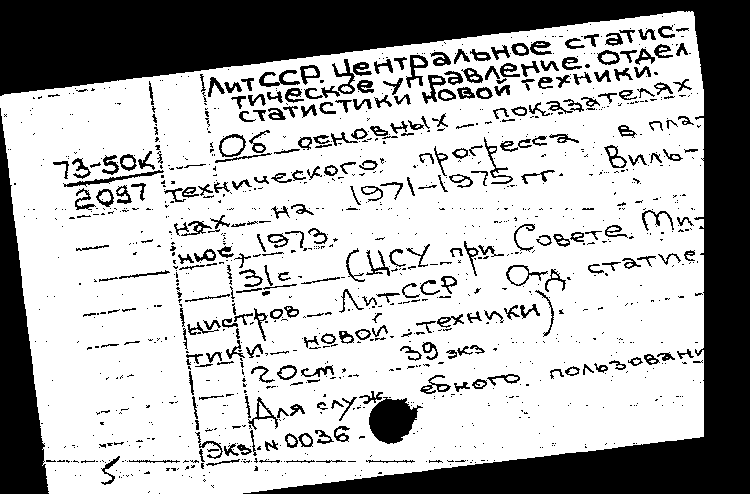 ЛитССР. Центральное статис-
тическое управление. Отдел
статистики новой техники.
Об основных показателях
73-50К
2097
технического прогресса в пла-
нах на 1971-1975 гг. Виль-
нюс, 1973.
31с. (ЦСУ при Совете Ми-
нистров ЛитССР. Отд. статис-
тики новой техники).
20см. 39 экз.
Для служебного пользовани
Экз. N 0036.
5